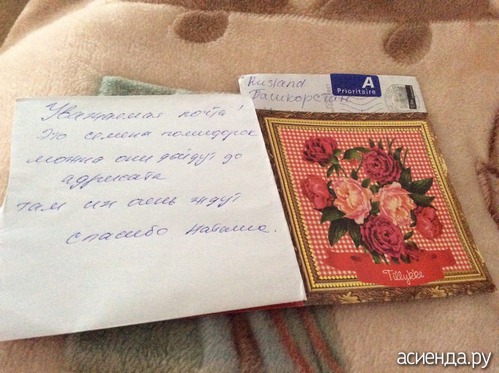 Уважаемая почта!
Это семена помидорок
можно они дойдут до
адресата
там их очень ждут
спасибо Наташа.
Rusland
Башкорстан
A
Prioritaire
Tillykke
асиенда.ру